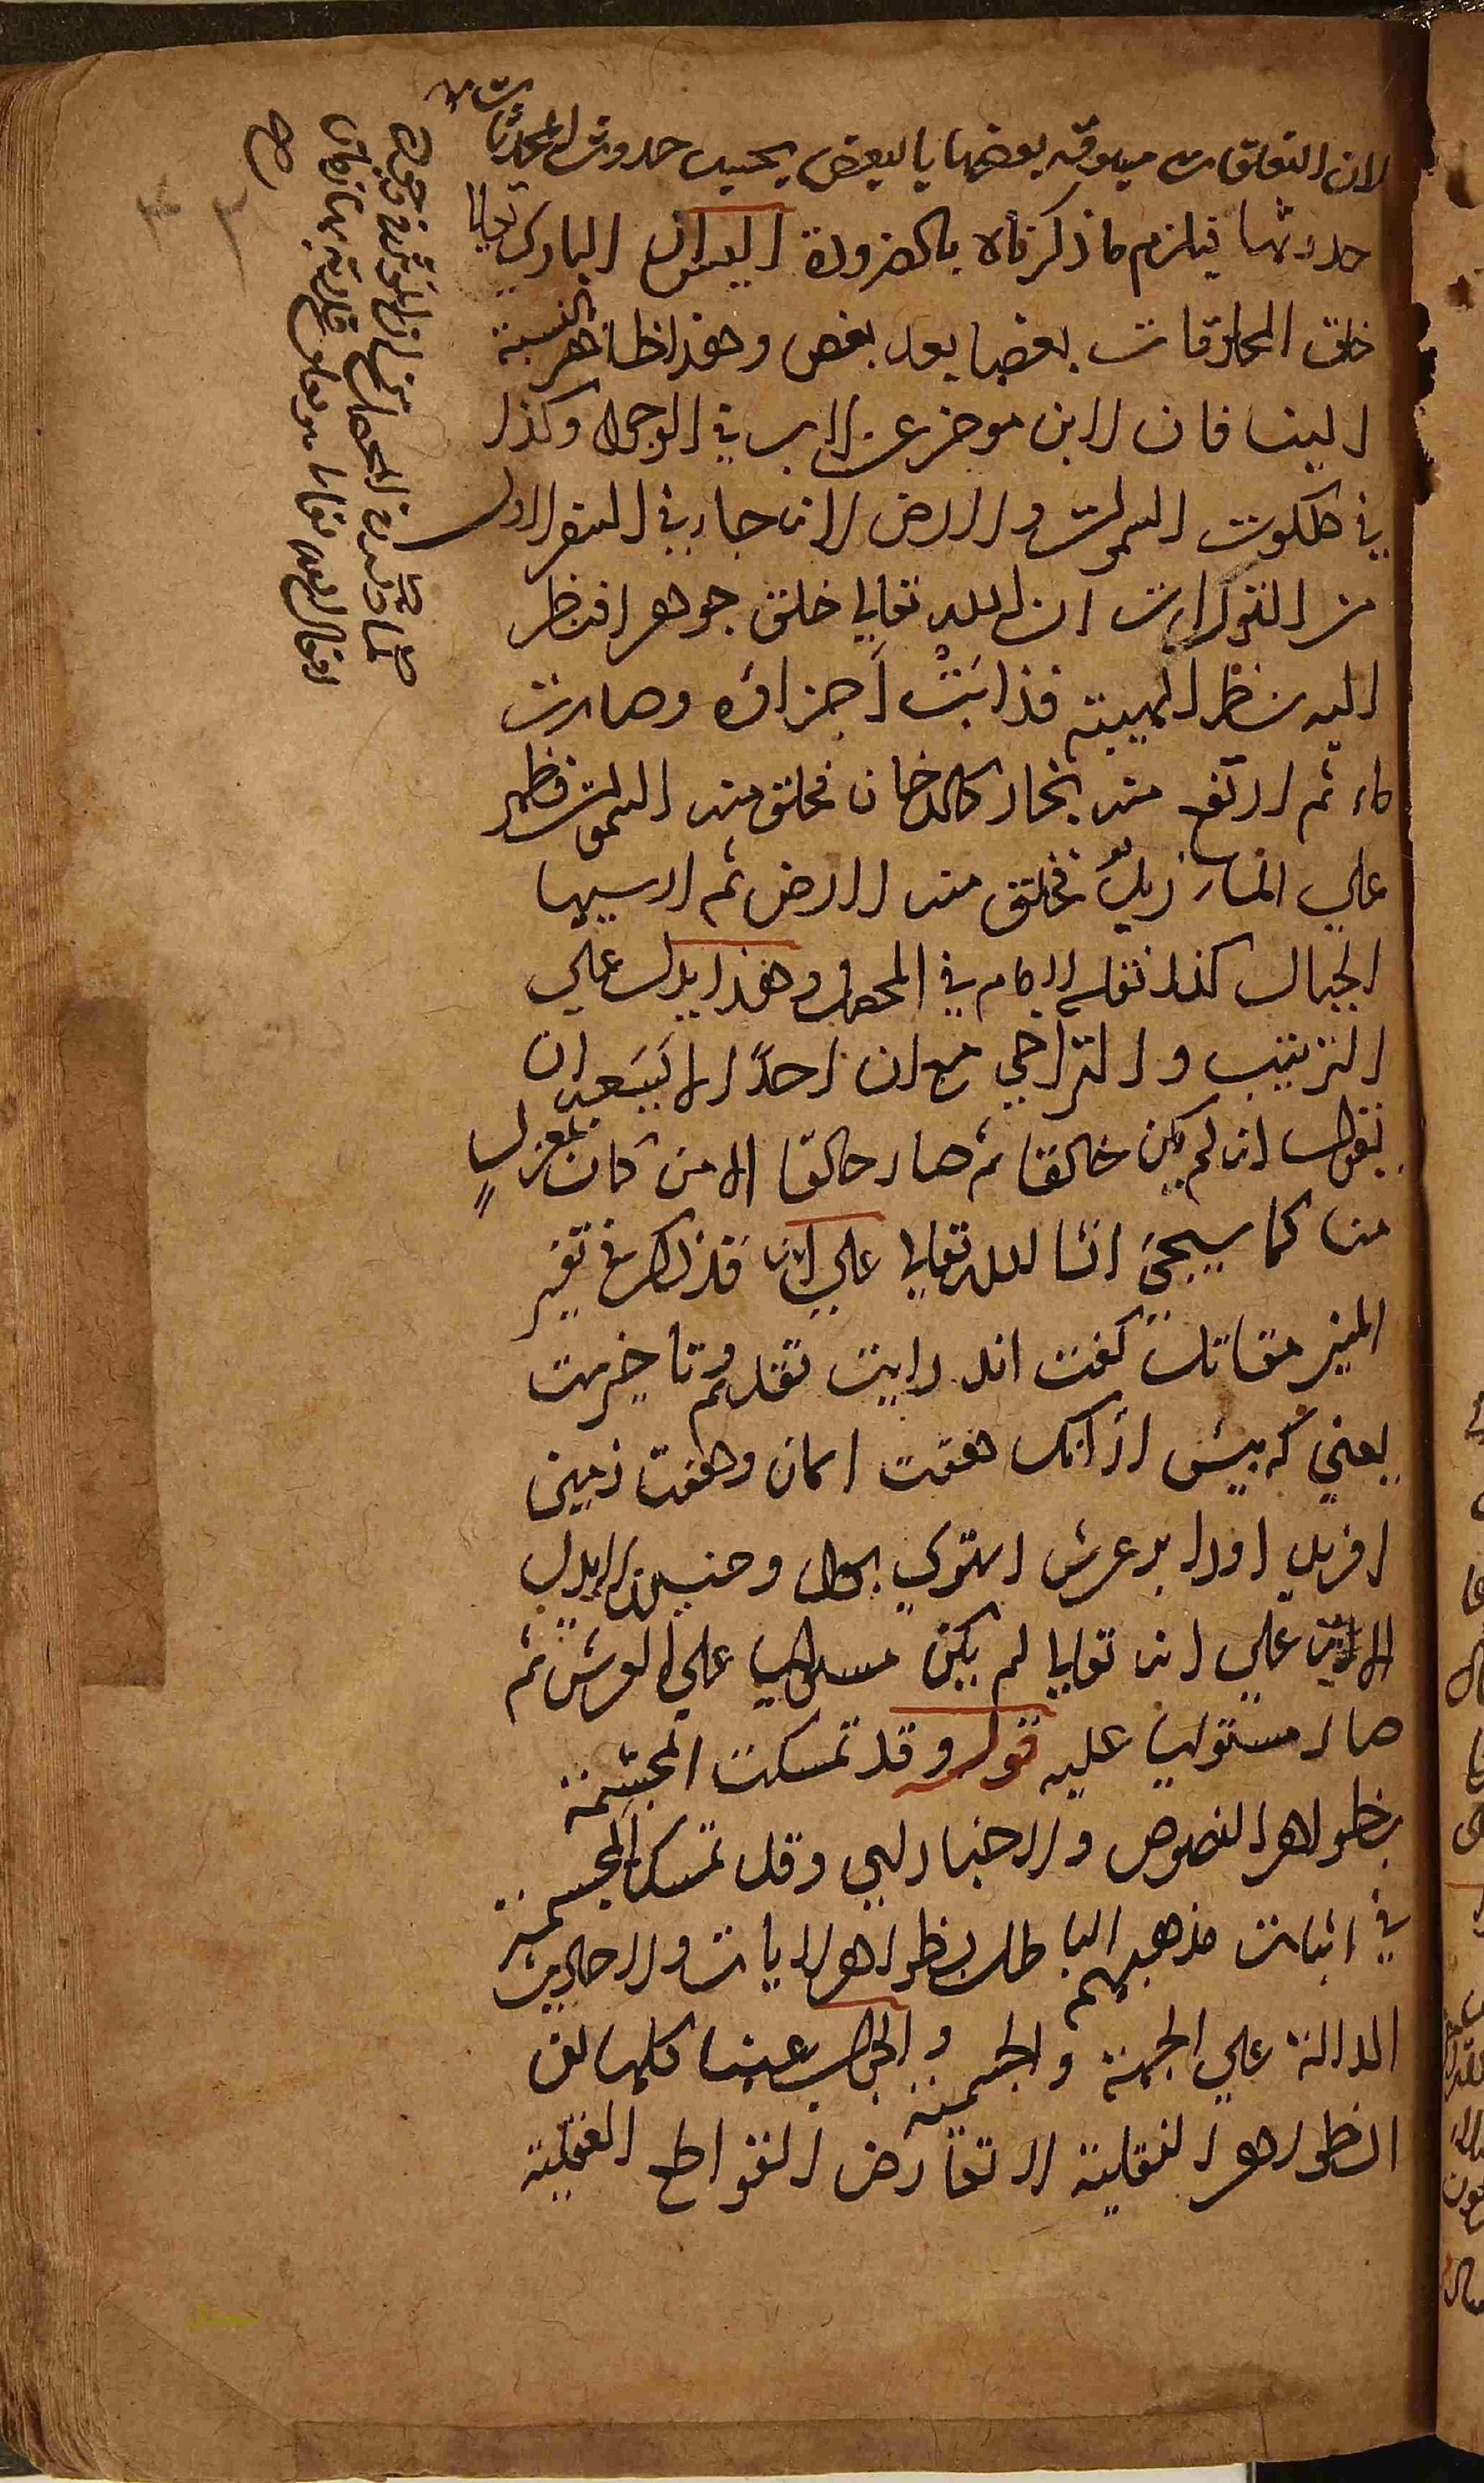 لان التعلقات مسبوقة بعضها بالبعض بحسب حدوث المحدثات
حدوثها فيلزم ما ذكرناه بالضرورة اليس ان الباري تعالى
خلق المخلوقات بعضها بعد بعض وهذا ظاهر بالنسبة
الينا فان الابن موخر عن الاب في الوجود وكذا
في ملكوت السموات والارض لانه جاء في السفر الاول
من التورات ان الله تعالى خلق جوهرا فنظر
اليه نظر الهيبة فذابَتْ اَجزاؤه وصارت
ماء ثم ارتفع منه بخار كالدخان فخلق منه السموات فظهر
علي الماء زبدٌ فخلق منه الارض ثم ارسيها
الجبال كذا نقل الامام في المحصل وهذا يدل علي
الترتيب والتراخي مع ان احدًا لا يَسَعه ان
يقول انه لم يكن خالقا ثم صار خالقا الا من كان بمعزلٍ
منا كما سيجئ انشا الله تعالى علي انه قد ذكر في تفسير
المنير مقاتل كفت اندر ايت تقديم وتاخيرست
يعني كه پيش از انك هفت اسمان وهفت زمين
افريد اورا بر عرش استوي بود وحينئذ لا يدل
الاية علي انه تعالى لم يكن مستويا علي العرش ثم
صار مستويا عليه قوله وقد تمسكت المجسمة
بظواهر النصوص والاخبار اي وقد تمسك المجسمة
في اثبات مذهبهم الباطل بظواهر الايات والاحاديث
الدالة علي الجهة والجسمية والجواب عنها كلها ان
الظواهر النقلية لا تعارض القواطع العقلية